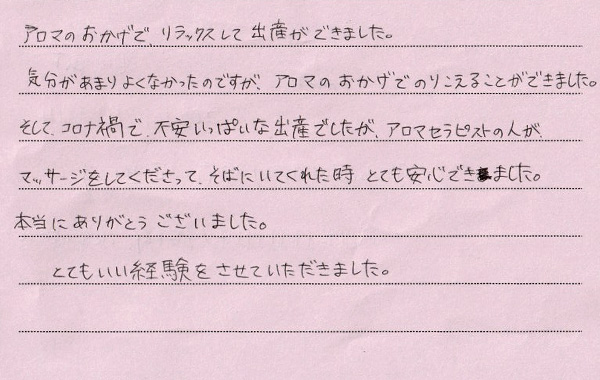 アロマのおかげで、リラックスして出産ができました。
気分があまりよくなかったのですが、アロマのおかげでのりこえることができました。
そして、コロナ禍で、不安いっぱいな出産でしたが、アロマセラピストの人が、
マッサージをしてくださって、そばにいてくれた時とても安心できました。
本当にありがとうございました。
とてもいい経験をさせていただきました。